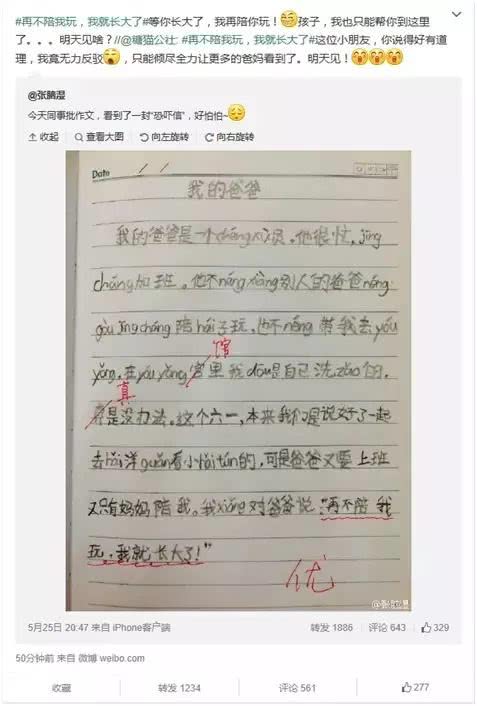 #再不陪我玩，我就长大了#等你长大了，我再陪你玩！孩子，我也只能帮你到这里
了。。。明天见啥？//@糖猫公社: #再不陪我玩，我就长大了#这位小朋友，你说得好有道
理，我竟无力反驳，只能倾尽全力让更多的爸妈看到了。明天见！
@张脑湿
今天同事批作文，看到了一封“恐吓信”，好怕怕~
收起 查看大图 向左旋转 向右旋转
Date / /
我的爸爸
我的爸爸是一个 员。他很忙，jīng
cháng加班。他不néng xiàng别人的爸爸néng
gòu jīng cháng 陪hái子玩，也不néng 带我去yóu
yǒng，在yóu yǒng 宫里我dōu是自己洗zǎo的，
馆
真
是没办法。这个六一，本来我们是说好了一起
去hǎi洋guǎn看小hǎi tún的，可是爸爸又要上班
又只有妈妈陪我。我xiǎng对爸爸说：“再不陪我
玩，我就长大了！”
优
@张脑湿
5月25日 20:47 来自 iPhone客户端 转发 1886 评论 643 329
50分钟前 来自 微博 weibo.com
收藏 转发 1234 评论 561 277